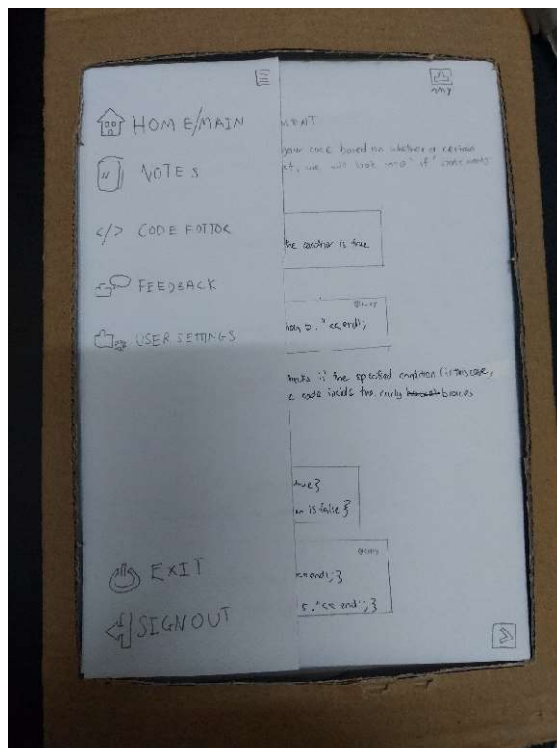 HOME/MAIN
NOTES
</> CODE EDITOR
FEEDBACK
USER SETTINGS
EXIT
SIGNOUT
MENT
your code based on whether a certain
we will look into 'if' statements
the condition is true
" << endl;
if the specified condition (in this case,
code inside the curly braces
true }
is false }
<< endl; }
5." << endl"; }